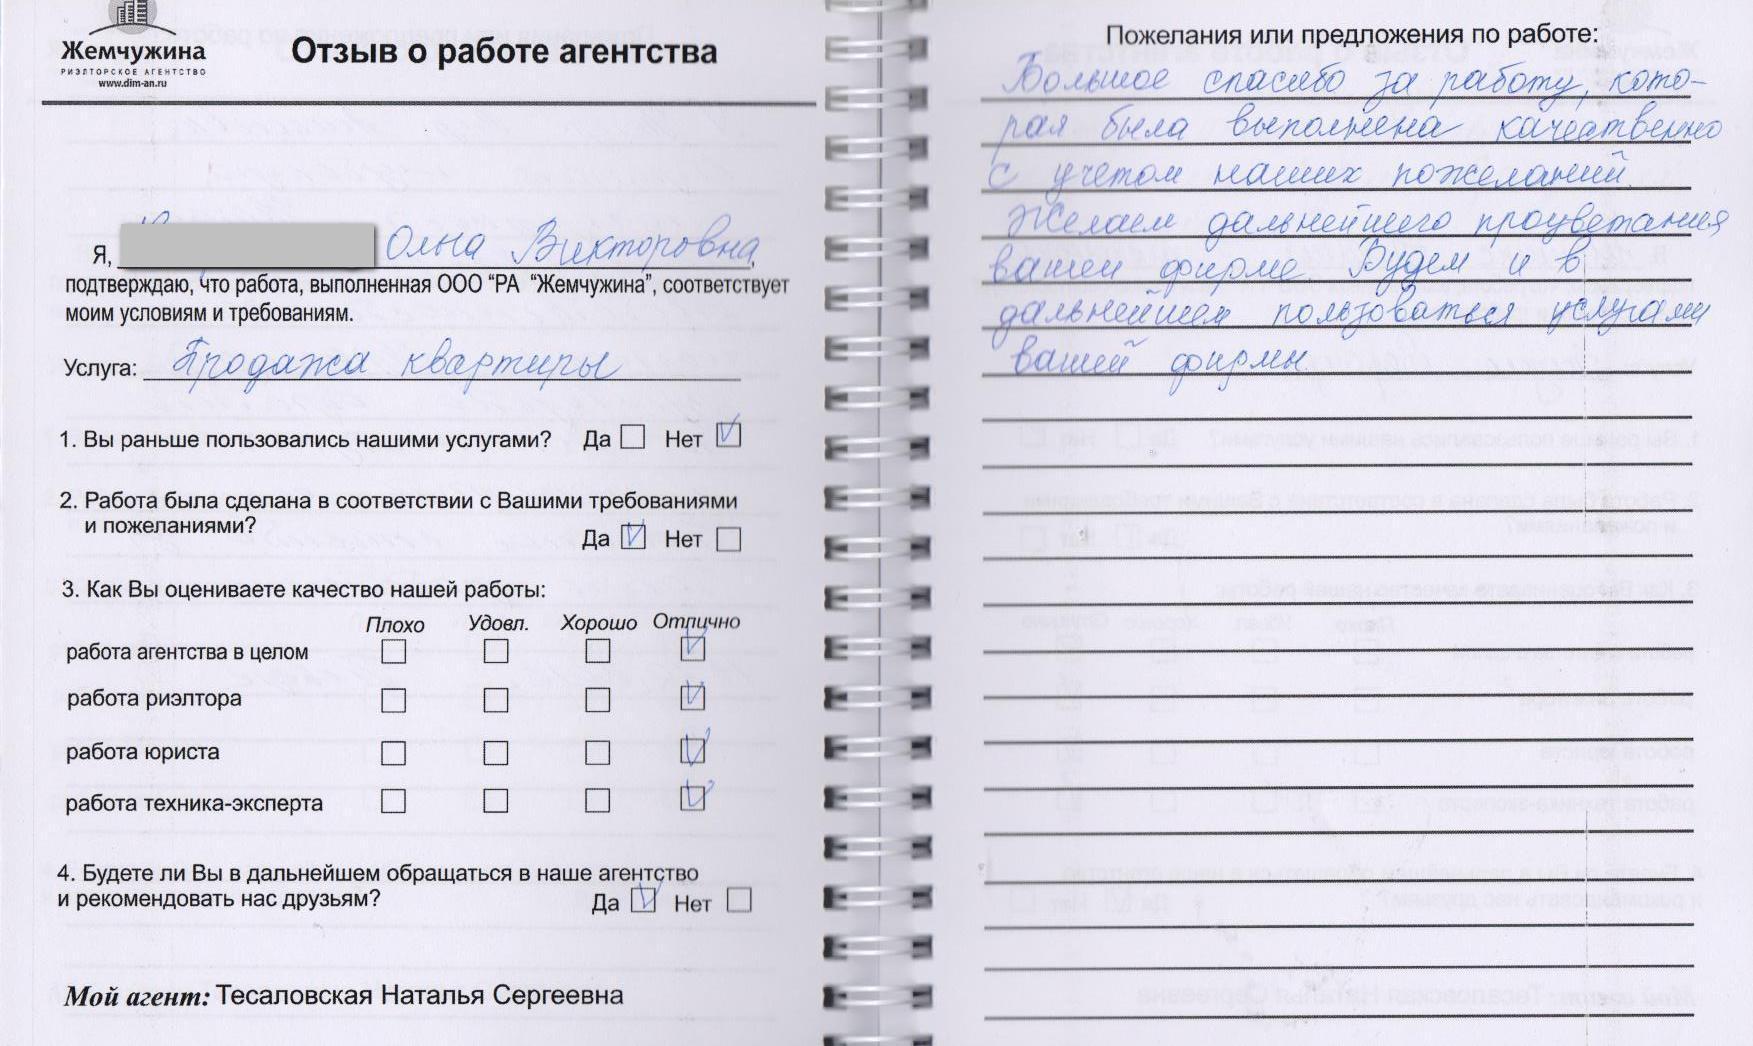 Жемчужина
РИЭЛТОРСКОЕ АГЕНТСТВО
www.dim-an.ru
Отзыв о работе агентства
Я, Ольга Викторовна,
подтверждаю, что работа, выполненная ООО "РА "Жемчужина", соответствует
моим условиям и требованиям.
Услуга: Продажа квартиры
1. Вы раньше пользовались нашими услугами? Да Нет
2. Работа была сделана в соответствии с Вашими требованиями
и пожеланиями?
Да Нет
3. Как Вы оцениваете качество нашей работы:
Плохо Удовл. Хорошо Отлично
работа агентства в целом
работа риэлтора
работа юриста
работа техника-эксперта
4. Будете ли Вы в дальнейшем обращаться в наше агентство
и рекомендовать нас друзьям?
Да Нет
Мой агент: Тесаловская Наталья Сергеевна
Пожелания или предложения по работе:
Большое спасибо за работу, кото-
рая была выполнена качественно
с учетом наших пожеланий.
Желаем дальнейшего процветания
вашей фирме. Будем и в
дальнейшем пользоваться услугами
вашей фирмы.